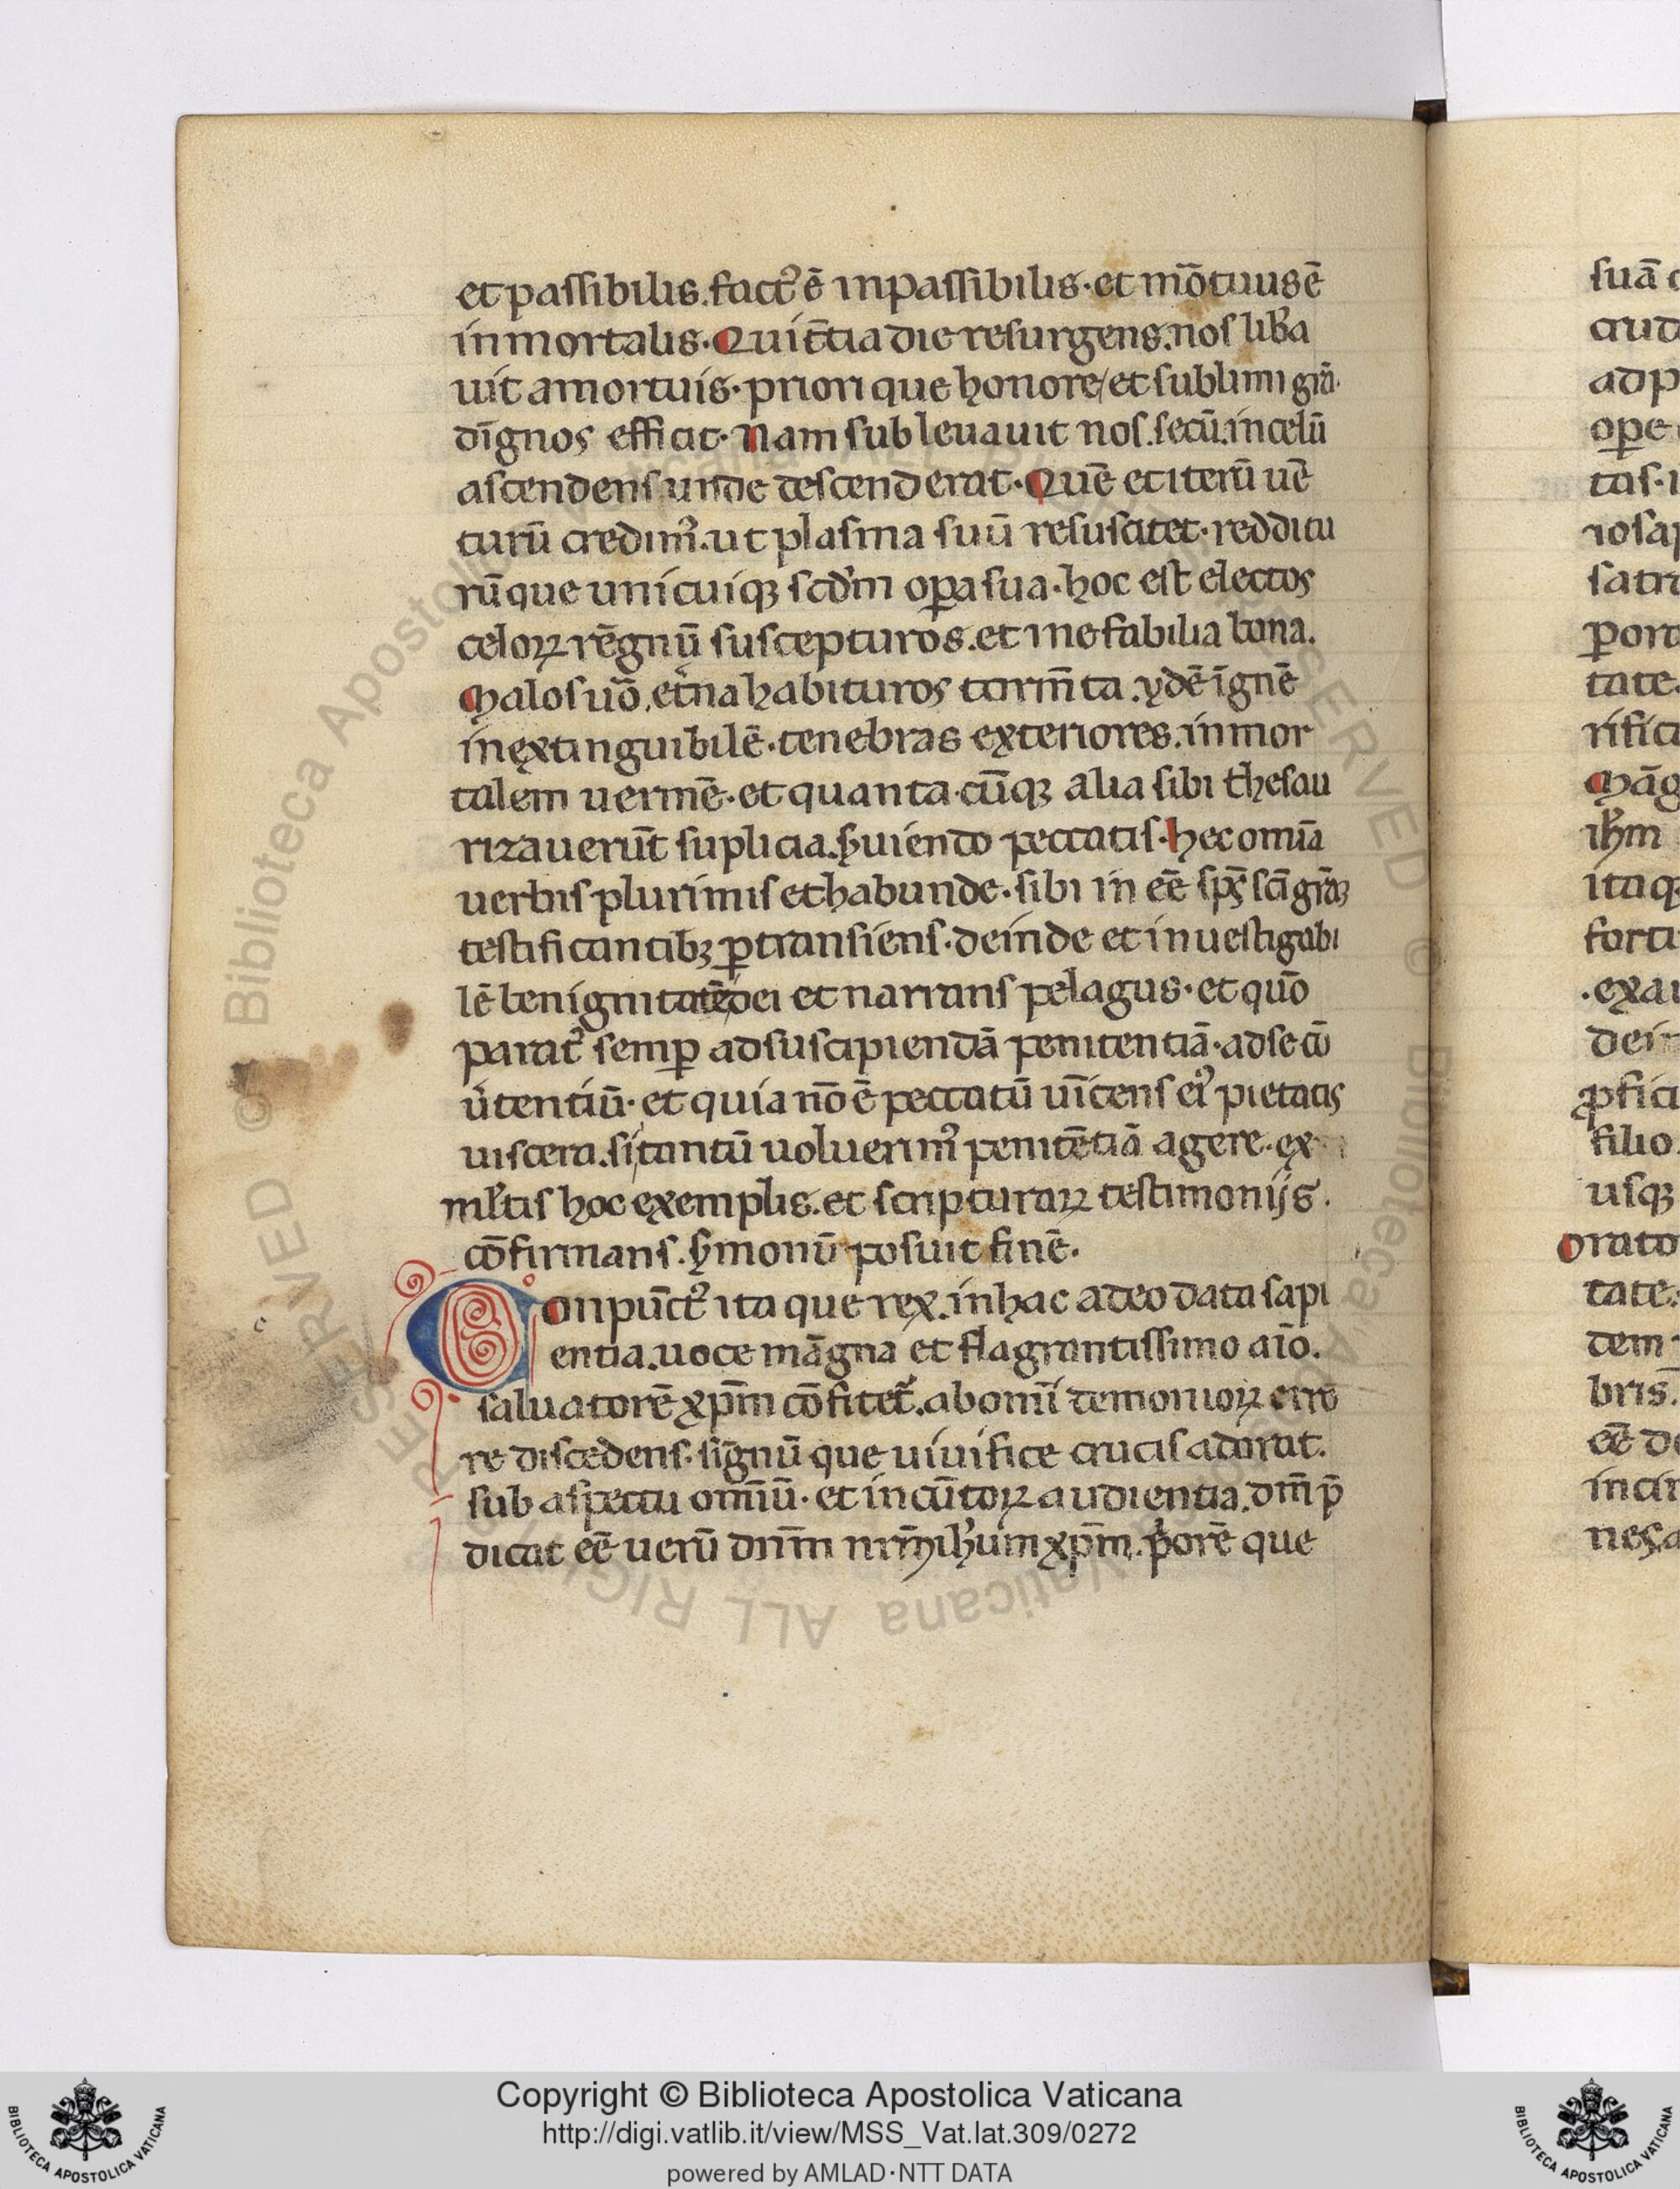 et passibilis. fact᾽ ē inpassibilis · et mōtuus ē
in mortalis · Qui t̄tia die resurgens. nos lib̄a
uit a mortuis · priori que honore / et sublimi gr̄a ·
dīgnos efficit · Nam subleuauit nos. secū. in celū
ascendens unde descenderat · Quē et iterū uē
turū credim᾽. ut plasma suū resuscitet · redditu
rū que unicuiqꝫ scd̄m oꝑa sua · hoc est electos
celoꝝ rēgnū suscepturos. et inefabilia bona.
Malos uō, et̄na habituros torm̄ta. ydē īgnē
inextinguibilē · tenebras exteriores. inmor
talem uermē · et quanta · cūqꝫ alia sibi thesau
rizauerūt suplicia. s̄uiendo peccatis · hec omīa
uerbis plurimis et habunde · sibi in eē sp̄s sc̄i gr̄aꝫ
testificantibꝫ ꝑtransiens · deinde et inuestigabi
lē benignitatē dei et narrans pelagus · et quō
parat᾽ semꝑ ad suscipiendā penitentiā · ad se cō
ūtentiū · et quia nō ē peccatū uīcens ei᾽ pietatis
uiscera. si tantū uoluerim᾽ penitētiā agere · ex
ml̄tis hoc exemplis. et scripturaꝝ testimonijs.
cōfirmans. s̄monū posuit finē.
Conpūct᾽ ita que rex. in hac a deo data sapi
entia. uoce māgna et flagrantissimo aīo.
saluatorē xp̄m cōfitet᷑. ab omī demonioꝝ erro
re discedens · sīgnū que uiuifice crucis adorat.
sub aspectu omīū · et in cūctoꝝ audientia. dm̄ p̄
dicat eē uerū dnm̄ nrm̄ ih̄um xp̄m. p̄orē que
suā
aud
ad p
oꝑe
tas ·
satra
ꝑ
tate.
rifici
Māg
ih̄m
itaqꝫ
forti
· exau
ꝓfici
filio.
usqꝫ
Orato
tate.
dem
bris.
eē
Copyright © Biblioteca Apostolica Vaticana
http://digi.vatlib.it/view/MSS_Vat.lat.309/0272
powered by AMLAD·NTT DATA
BIBLIOTECA APOSTOLICA VATICANA
BIBLIOTECA APOSTOLICA VATICANA